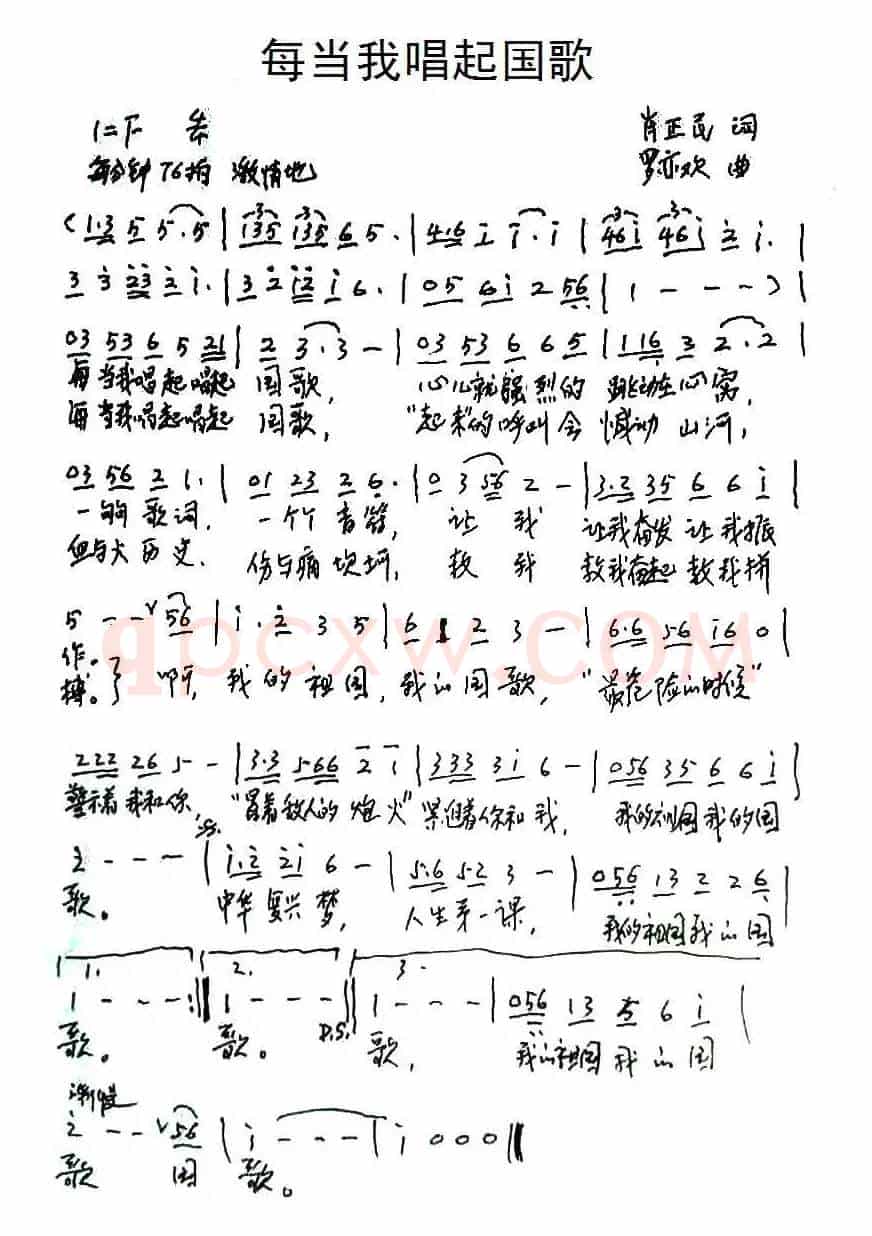 每当我唱起国歌
1=F 4/4 肖正民 词
每分钟76拍 激情地 罗亦欢 曲
(1·3 5 5·5 | 135 135 6 5· | 4·6 i i·i | 46i 46i 2 i· |
3 3 23 2 i· | 3 2 i2 i 6· | 05 6i 2 56 | 1 - - -) |
03 53 6 5 21 | 2 3·3 - | 03 53 6 6 5 | 1 16 3 2·2 |
每当我唱起唱起 国歌, 心儿就强烈的 跳动在心窝,
每当我唱起唱起 国歌, "起来"的呼叫会 憾动 山河,
03 56 2 1· | 01 23 2 6· | 0 3 56 2 - | 3·2 35 6 6 i |
一句 歌词, 一个 音符, 让 我 让我奋发 让我振
血与火 历史, 伤与痛 坎坷, 教 我 教我奋起 教我拼
5 - - ∨ 56 | i·2 3 5 | 6 1 2 3 - | 6·6 56 i6 0 |
作。
搏。} 啊, 我的祖国, 我的国歌, "最危险的时候"
222 26 5 - | 3·3 566 2 i | 333 3i 6 - | 056 35 6 6 i |
警示着我和你, "冒着敌人的 炮火" 紧追着你和我, 我的祖国我的国
2 - - - | i·2 2i 6 - | 5·6 5·2 3 - | 056 13 2 2 6 |
歌。 中华复兴梦, 人生第一课, 我的祖国我的国
1. 2. 3.
1 - - - :|| 1 - - - || 1 - - - | 056 13 5 6 i |
歌。 歌。 D.S. 歌, 我的祖国 我的国
渐慢
2 - - ∨ 56 | i - - - | i 0 0 0 ||
歌 国 歌。
qpcxw.COM